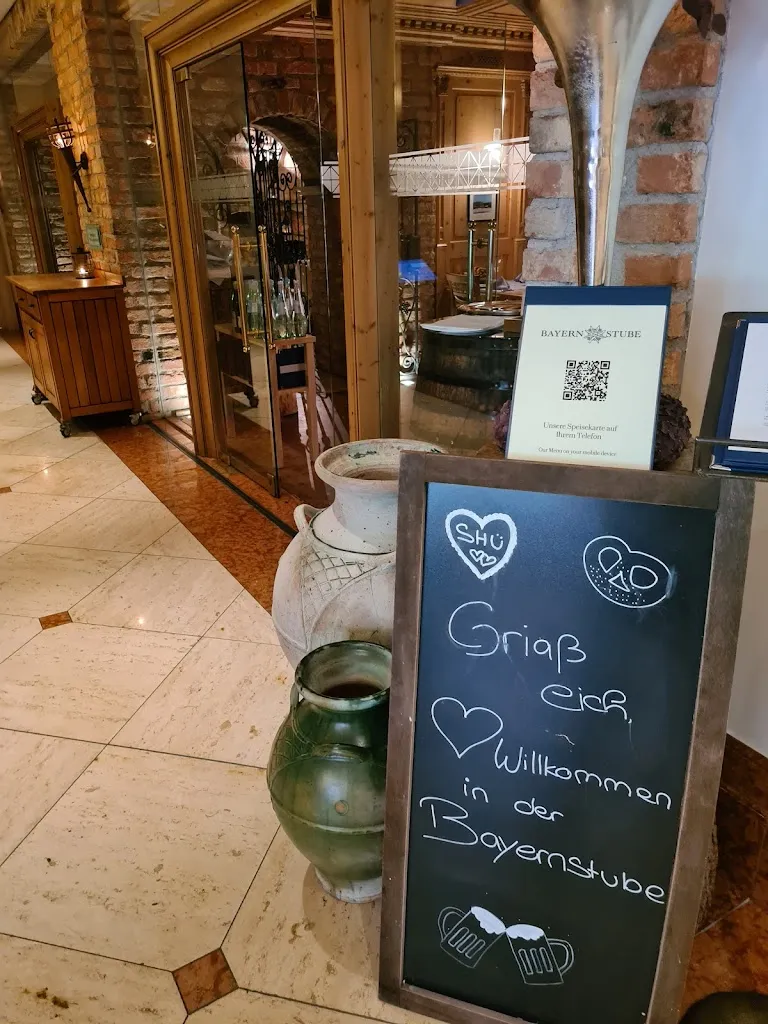 BAYERN STUBE
Unsere Speisekarte auf
Ihrem Telefon
Our Menu on your mobile device
SHÜ
Griaß
eich,
Willkommen
in der
Bayernstube